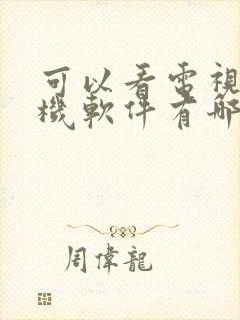 可以看電視
機軟件有哪
周偉龍